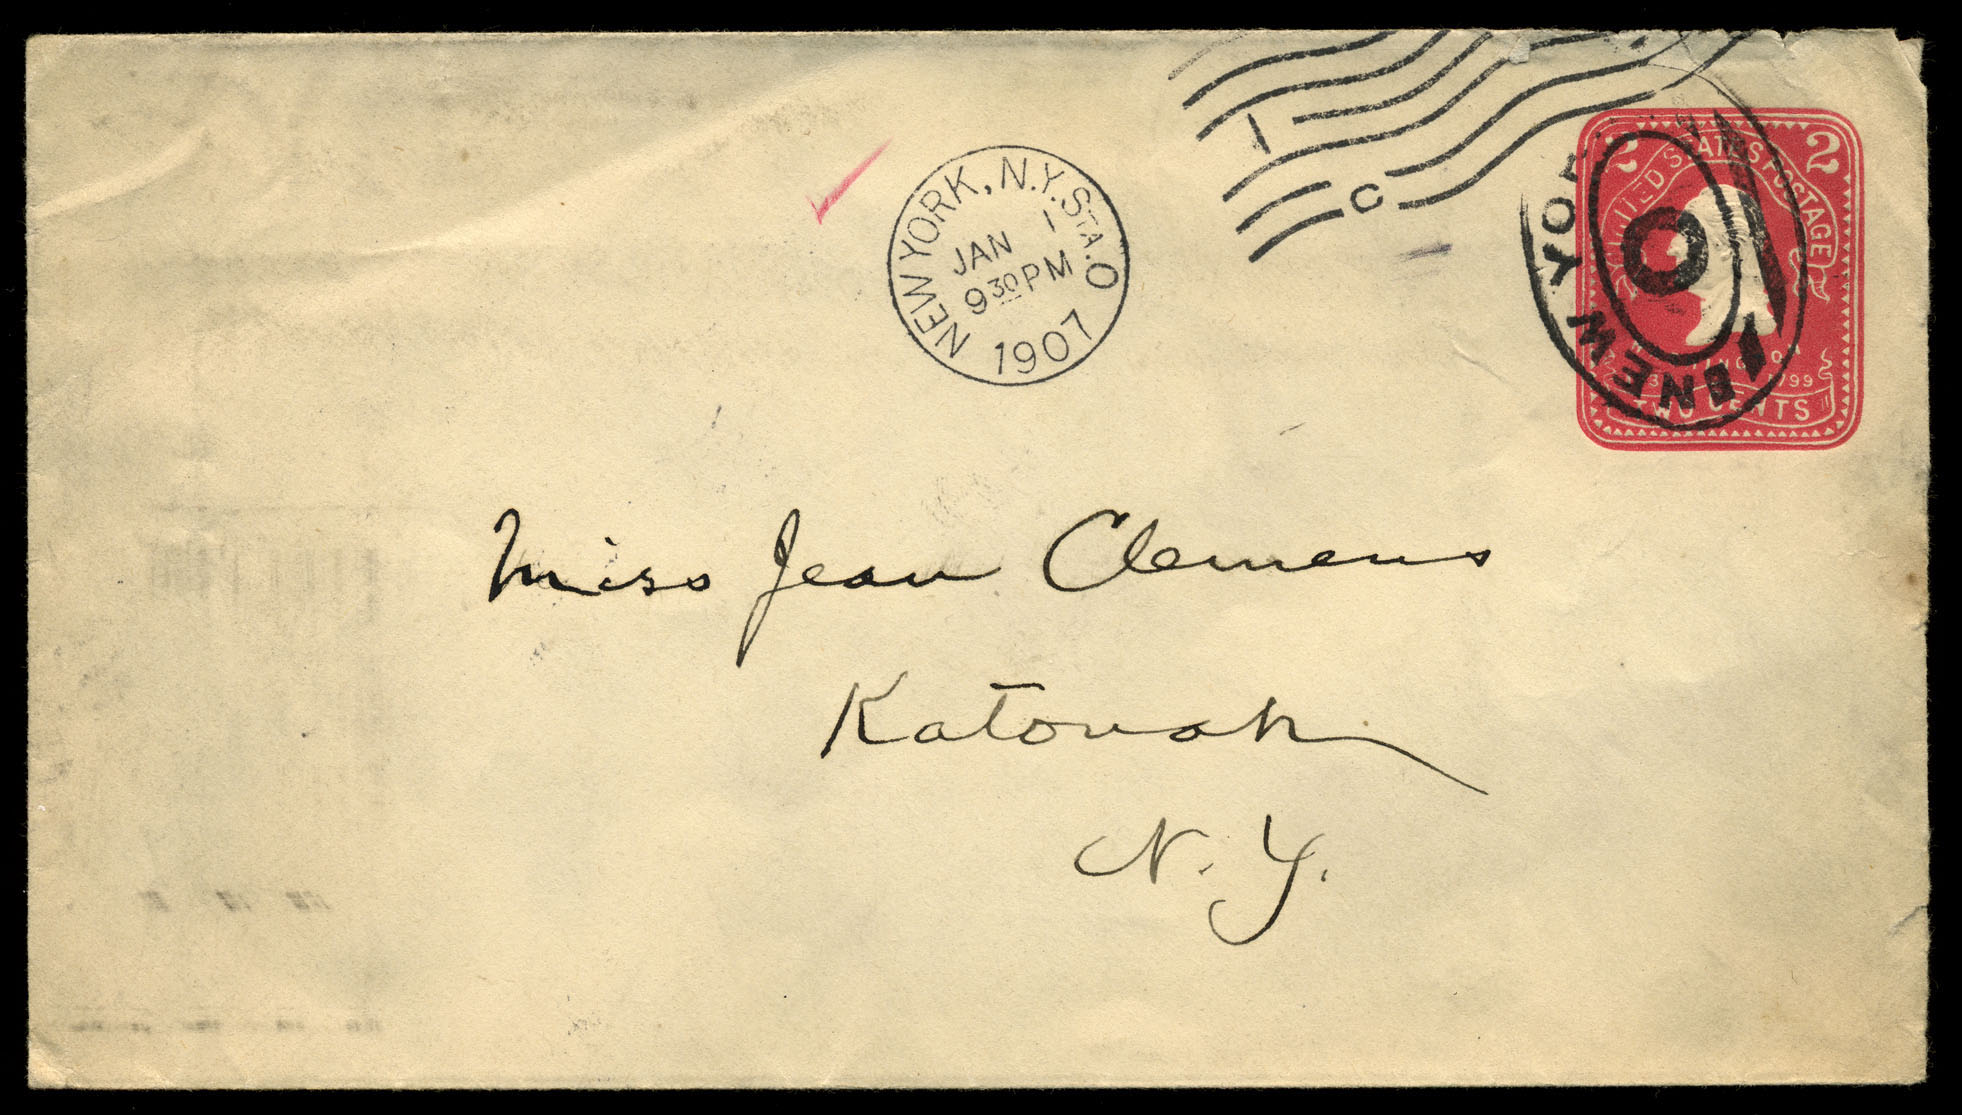 NEW YORK, N.Y. STA. O
JAN 1
9 30 PM
1907
1
C
NEW YOR
O
1
2 2
UNITED STATES POSTAGE
1799
TWO CENTS
Miss Jean Clemens
Katonah
N. Y.